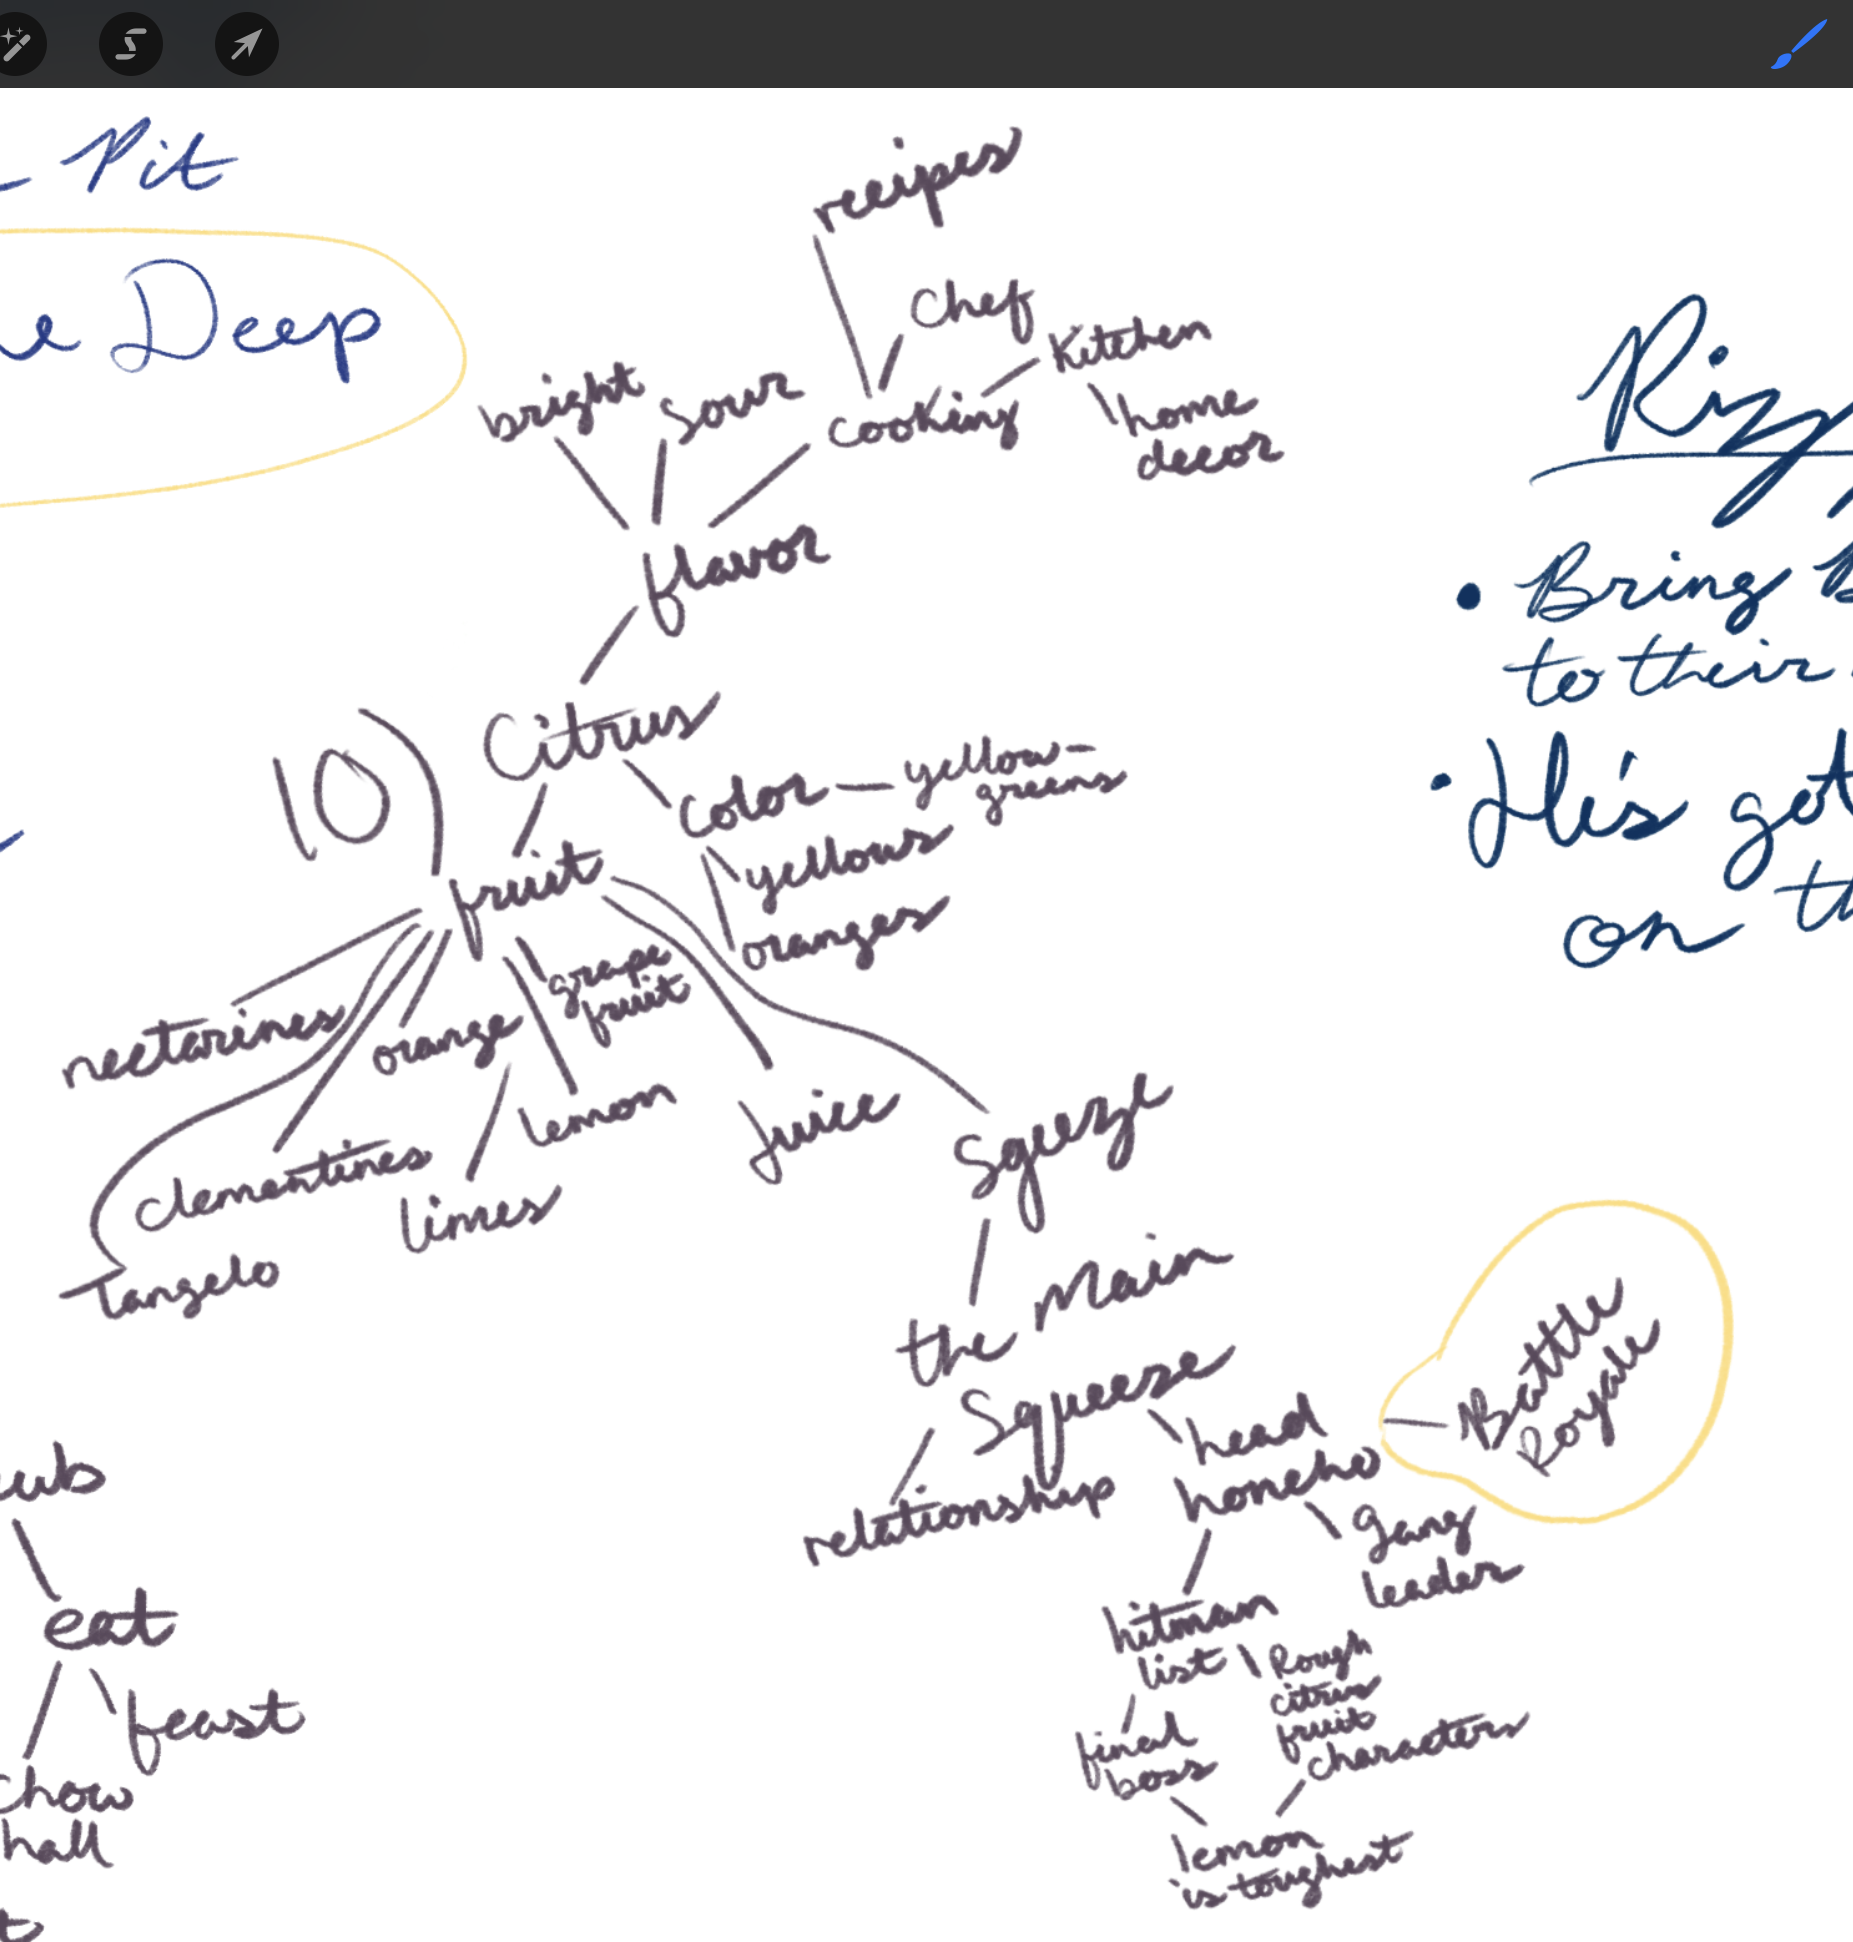 Pit
Deep
recipes
Chef
Kitchen
home
decor
bright
sour
cooking
flavor
Citrus
10)
color – yellow-
greens
yellows
oranges
fruit
grape
fruit
nectarines
orange
lemon
juice
sqeeze
clementines
limes
Tangelo
the Main
Squeeze
relationship
head
honcho
Battle
Royale
gang
leader
hitman
list
Rough
citrus
fruit
characters
final
boss
lemon
is toughest
eat
feast
chow
hall
• Bring
to their
• He's got
on